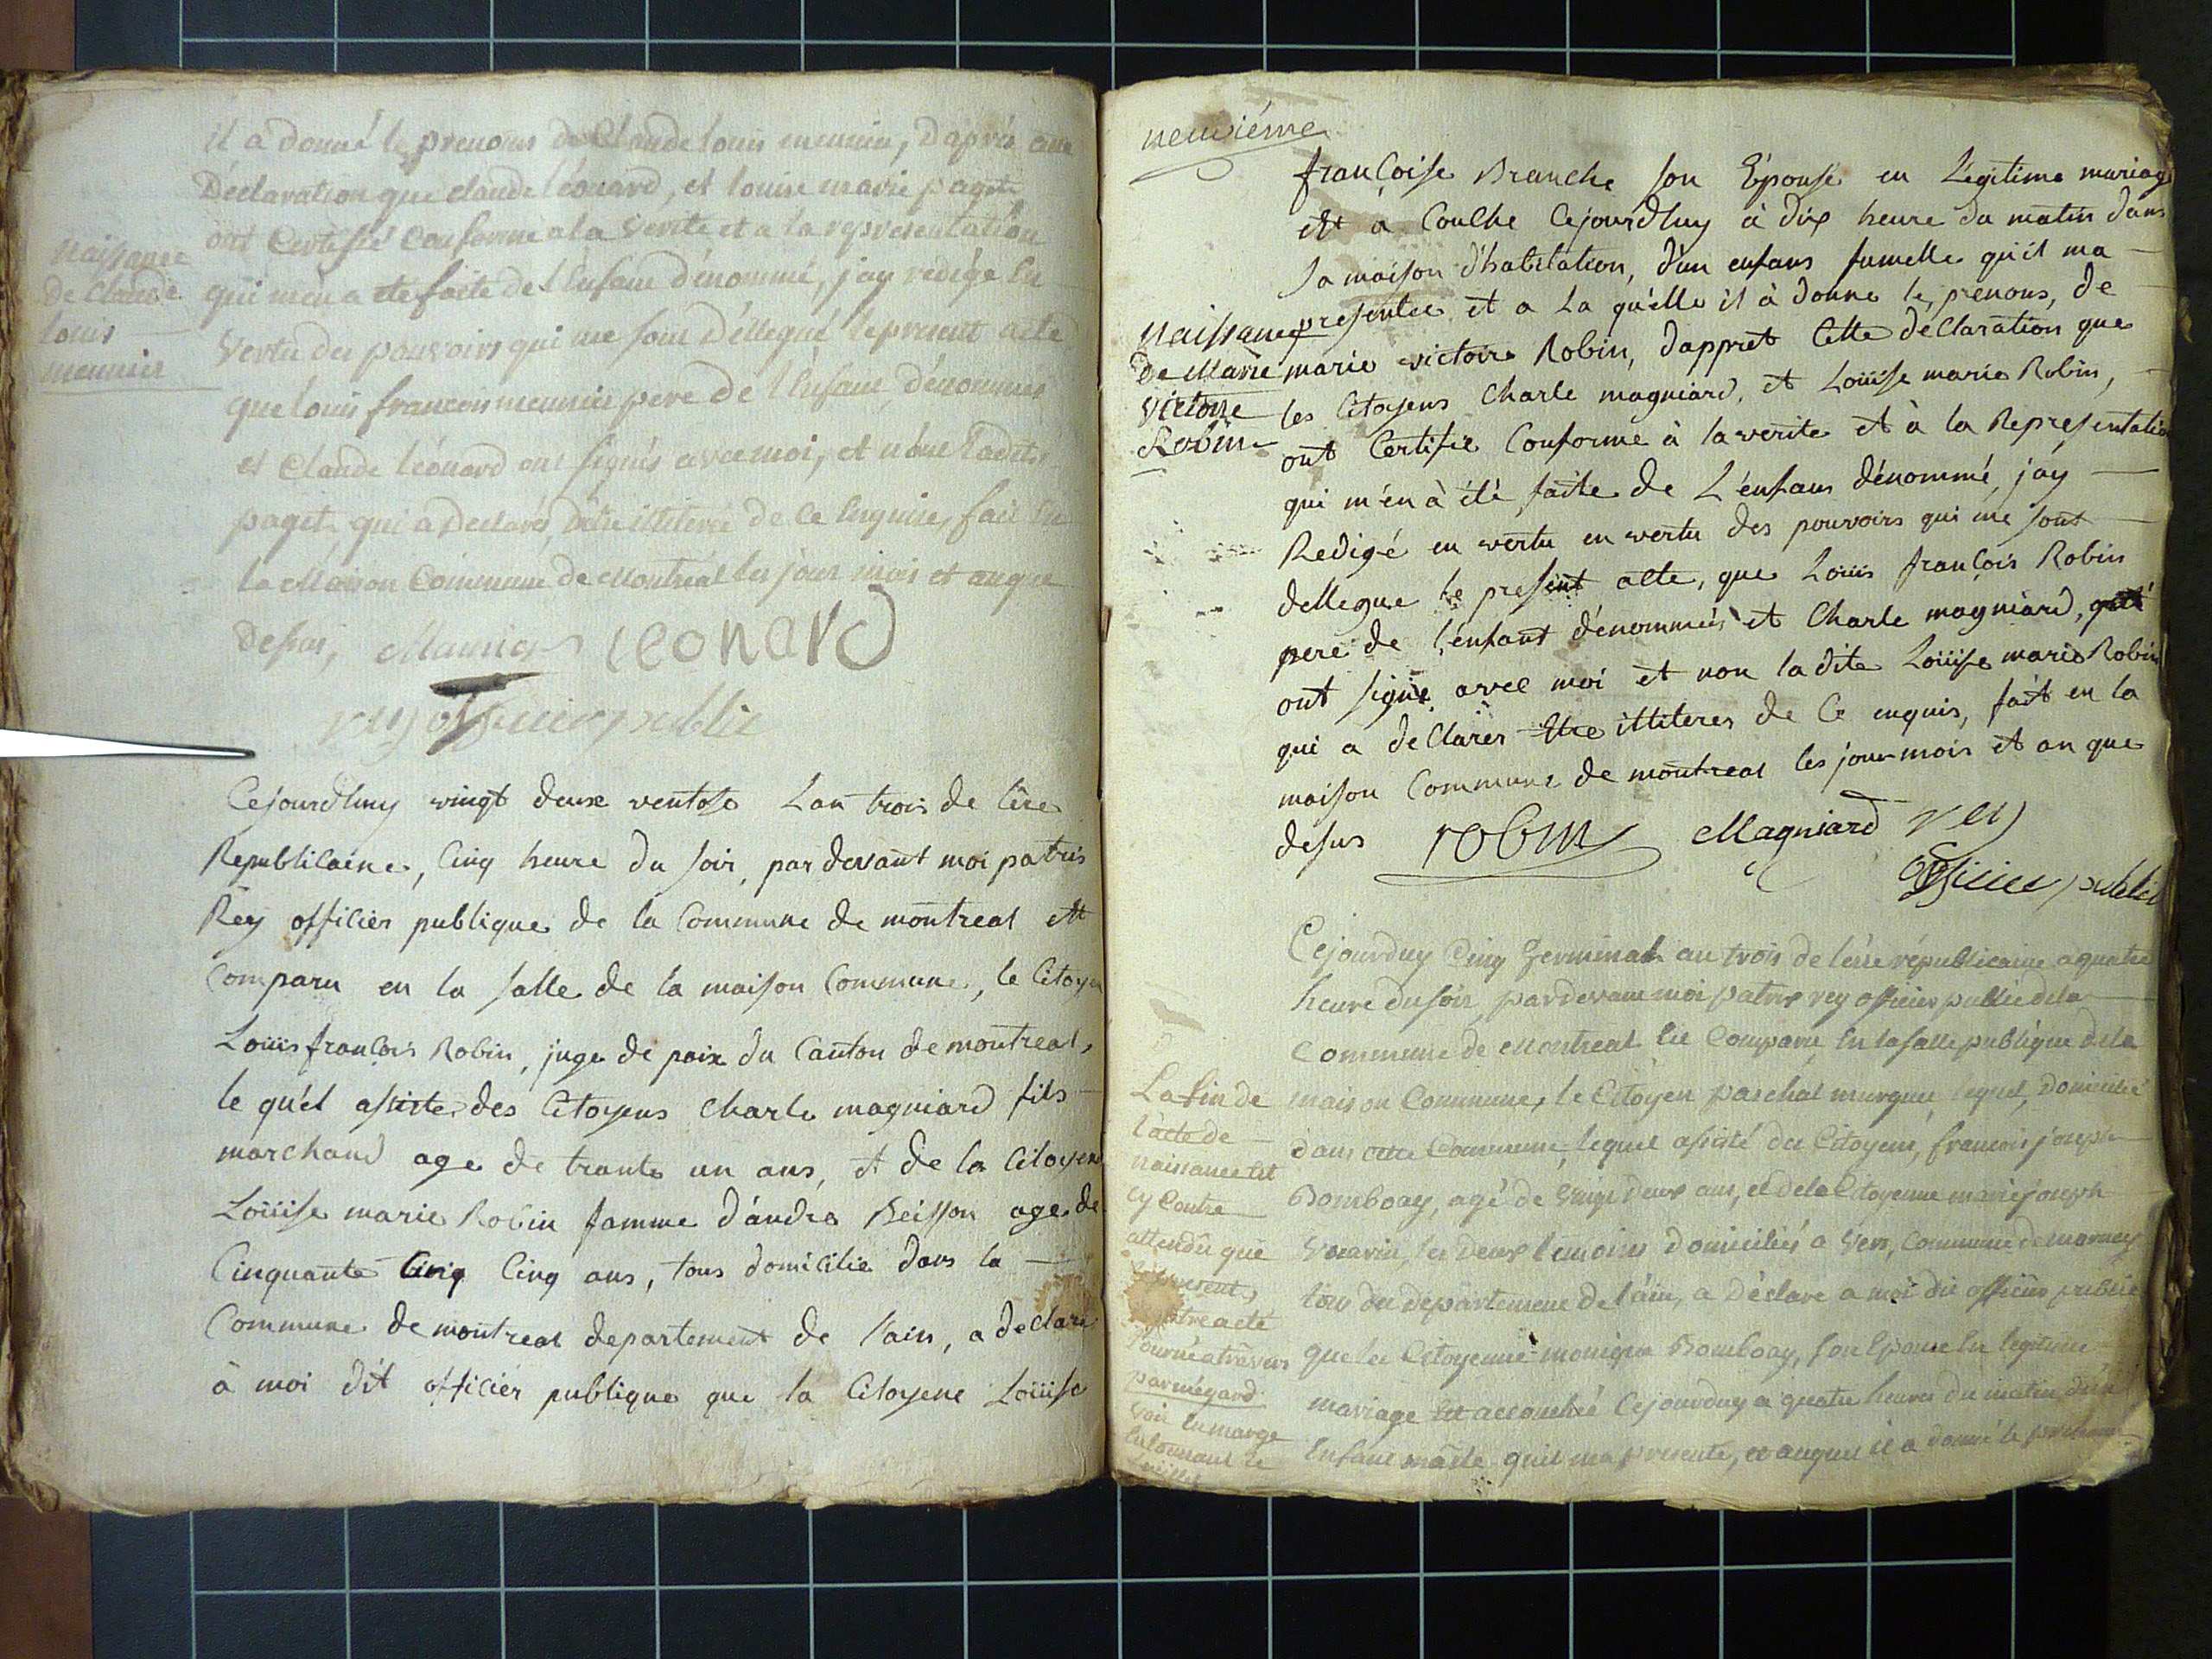 il a donné le prenoms de Claude louis meunier, d'après une
Déclaration que claude léonard, et louise marie paget
ont Certifié Conforme a la verite et a la representation
qui m'en a ete faite de l'Enfant dénommé, j'ay redigé En
Vertu des pouvoirs qui me sont déllegué le present acte
que louis francois meunier pere de l'Enfant dénommés
et Claude léonard ont signés avec moi, et non ladite
paget, qui a Declarés, être illiterée de ce Enquise, fait En
la Maison Commune de Montréal les jour mois et an que
Desus, Meunier leonard
rey officier public
Naissance
De Claude
louis
meunier
Cejourdhuy vingt deux ventose Lan trois de lère
Republicaine, Cinq heure du soir, par devant moi patris
Rey officier publique de la Commune de montreal est
Comparu en la salle de la maison Commune, le Citoyen
Louis françois Robin, juge de paix du Canton de montreal,
le qu'el assiste des Citoyens Charle magniard fils
marchand age de trante un ans, et de la Citoyene
Loüise marie Robin famme d'andre Beisson age de
Cinquante Cinq Cinq ans, tous domicilie dans la
Commune de montreal departement de l'ain, a declaré
à moi dit officier publique que la Citoyene Loüise
neuviéme
françoise Branche son Épouse en Légitime mariage
est a Couche Cejourdhuy à dix heure du matin dans
sa maison d'habitation, d'un enfans fumelle qu'il ma
presentee et a La qu'elle il à donne le, prenons, de
marie victoire Robin, dappret Cette déclaration que
les Citoyens Charle magniard, et Loüise marie Robin,
ont Certifie Conforme à la verite et à la Representation
qui m'en à été faite de L'enfans dénommé, j'ay
Redigé en vertu en vertu des pouvoirs qui me sont
dellegue le present acte, que Louis françois Robin
pere de l'enfant dénommés et Charle magniard,
ont signe avec moi et non la dite Loüise marie Robin
qui a declarer être illiteres de Ce enquis, fait en la
maison Commune de montreal les jour mois et an que
desus robin Magniard rey
officier public
Naissance
De Marie
Victoire
Robin
Cejourduy Cinq Germinal an trois de l'ère républicaine a quatre
heure du soir, pardevant moi patris rey officier public de la
Commune de Montreal Est Comparu En la salle publique de la
maison Commune, le Citoyen paschal murguei lequel, domicilié
dans cette Commune, lequel assisté du Citoyens, francois joseph
Bomboay, agé de vingt deux ans, et de la Citoyenne marie joseph
les deux temoins domiciliés a Vers, Commune de mornay
tous du departement de l'ain, a déclare a moi dit officier public
que la Citoyenne monique Bomboay, son Epouse En legitime
mariage Est accouchée Cejourduy a quatre heures du matin d'un
Enfant mâsle qu'il ma presente, et auquel il a donné le prenoms
La fin de
l'acte de
naissance Est
cy Contre
attendu que
le present
Registre a été
tourné a travers
par mégard
voir En marge
En tournant le
feuillet